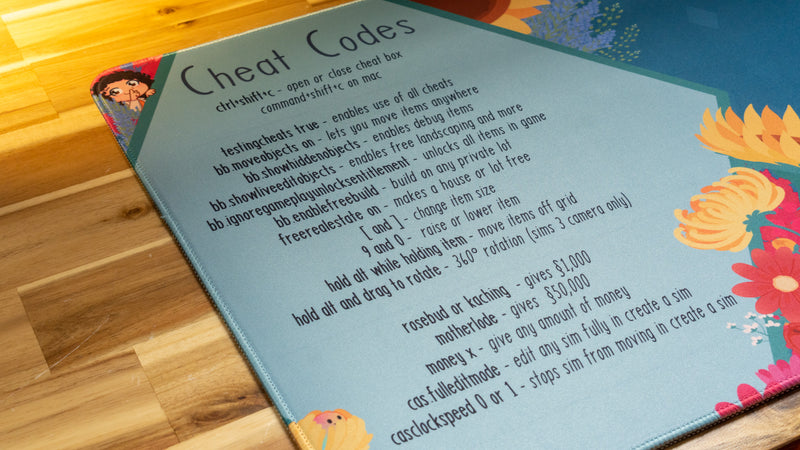 Cheat Codes
ctrl+shift+c - open or close cheat box
command+shift+c on mac
testingcheats true - enables use of all cheats
bb.moveobjects on - lets you move items anywhere
bb.showhiddenobjects - enables debug items
bb.showliveeditobjects - enables free landscaping and more
bb.ignoregameplayunlocksentitlement - unlocks all items in game
bb.enablefreebuild - build on any private lot
freerealestate on - makes a house or lot free
[ and ] - change item size
9 and 0 - raise or lower item
hold alt while holding item - move items off grid
hold alt and drag to rotate - 360° rotation (sims 3 camera only)
rosebud or kaching - gives §1,000
motherlode - gives §50,000
money x - give any amount of money
cas.fulleditmode - edit any sim fully in create a sim
casclockspeed 0 or 1 - stops sim from moving in create a sim